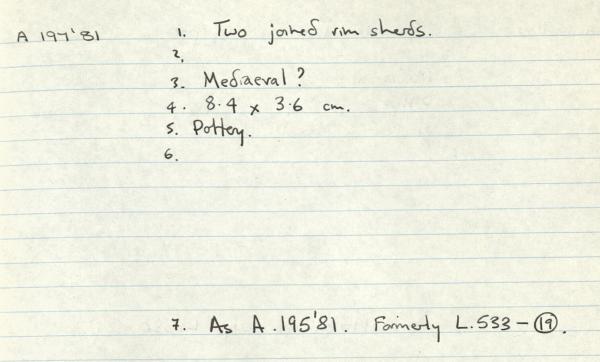 A 197'81 1. Two joined rim sherds.
2.
3. Mediaeval?
4. 8.4 x 3.6 cm.
5. Pottery.
6.
7. As A.195'81. Formerly L.533-19.